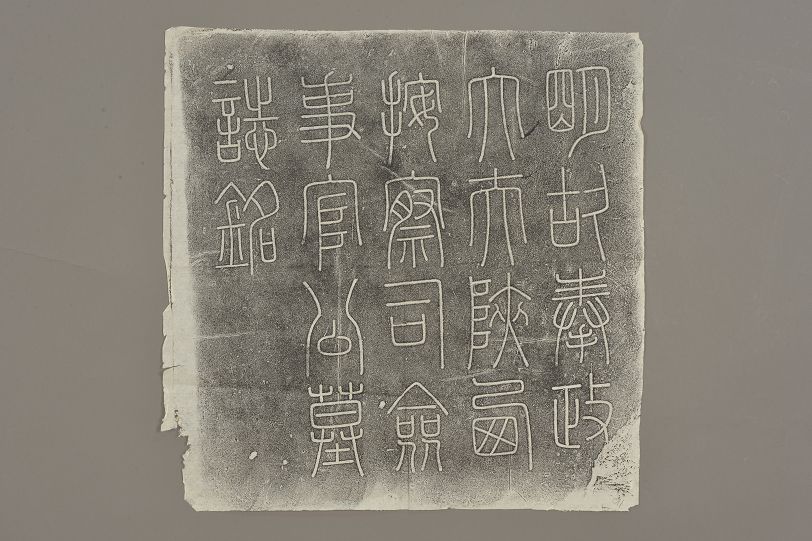 明故奉政
大夫陝西
按察司僉
事官公墓
誌銘